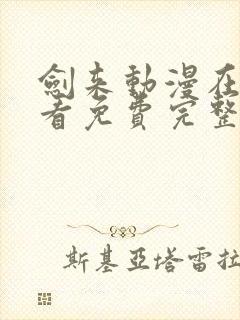 劍来動漫在
看免費完整
斯基亞塔雷拉